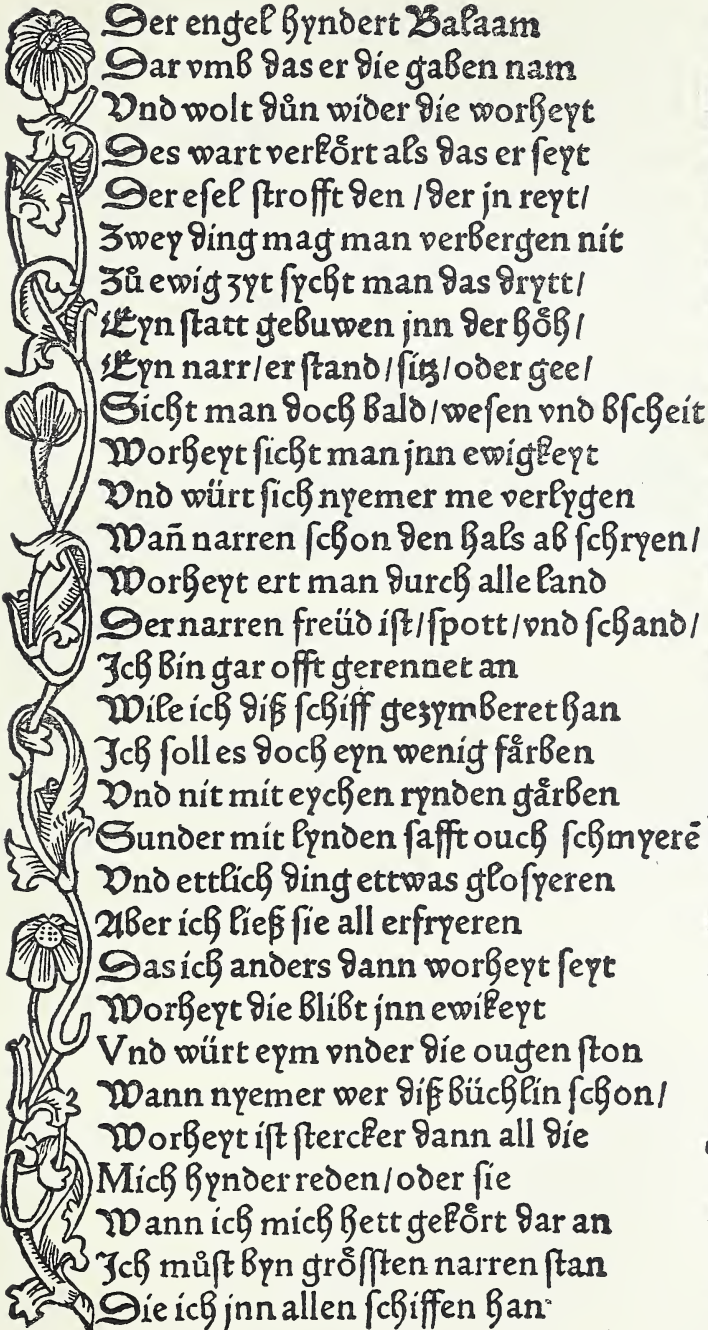 Der engel hyndert Balaam
Dar vmb das er die gaben nam
Vnd wolt důn wider die worheyt
Des wart verkoͤrt als das er seyt
Der esel strofft den / der jn reyt /
Zwey ding mag man verbergen nit
Zů ewig zyt sycht man das drytt /
Eyn statt gebuwen jnn der hoͤh /
Eyn narr / er stand / sitz / oder gee /
Sicht man doch bald / wesen vnd bscheit
Worheyt sicht man jnn ewigkeyt
Vnd würt sich nyemer me verlygen
Wañ narren schon den hals ab schryen /
Worheyt ert man durch alle land
Der narren freüd ist / spott / vnd schand /
Ich bin gar offt gerennet an
Wile ich diß schiff gezymberet han
Ich soll es doch eyn wenig faͤrben
Vnd nit mit eychen rynden gaͤrben
Sunder mit lynden safft ouch schmyerẽ
Vnd ettlich ding ettwas glosyeren
Aber ich ließ sie all erfryeren
Das ich anders dann worheyt seyt
Worheyt die blibt jnn ewikeyt
Vnd würt eym vnder die ougen ston
Wann nyemer wer diß büchlin schon /
Worheyt ist stercker dann all die
Mich hynder reden / oder sie
Wann ich mich hett gekoͤrt dar an
Ich můst byn groͤssten narren stan
Die ich jnn allen schiffen han